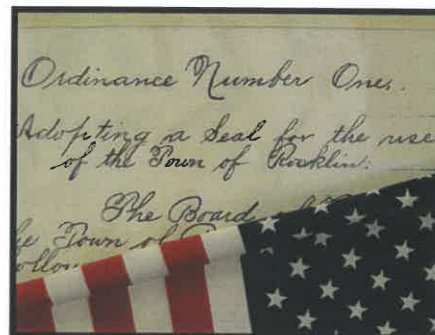 Ordinance Number One.
Adopting a Seal for the use
of the Town of Rocklin.
The Board
Town of